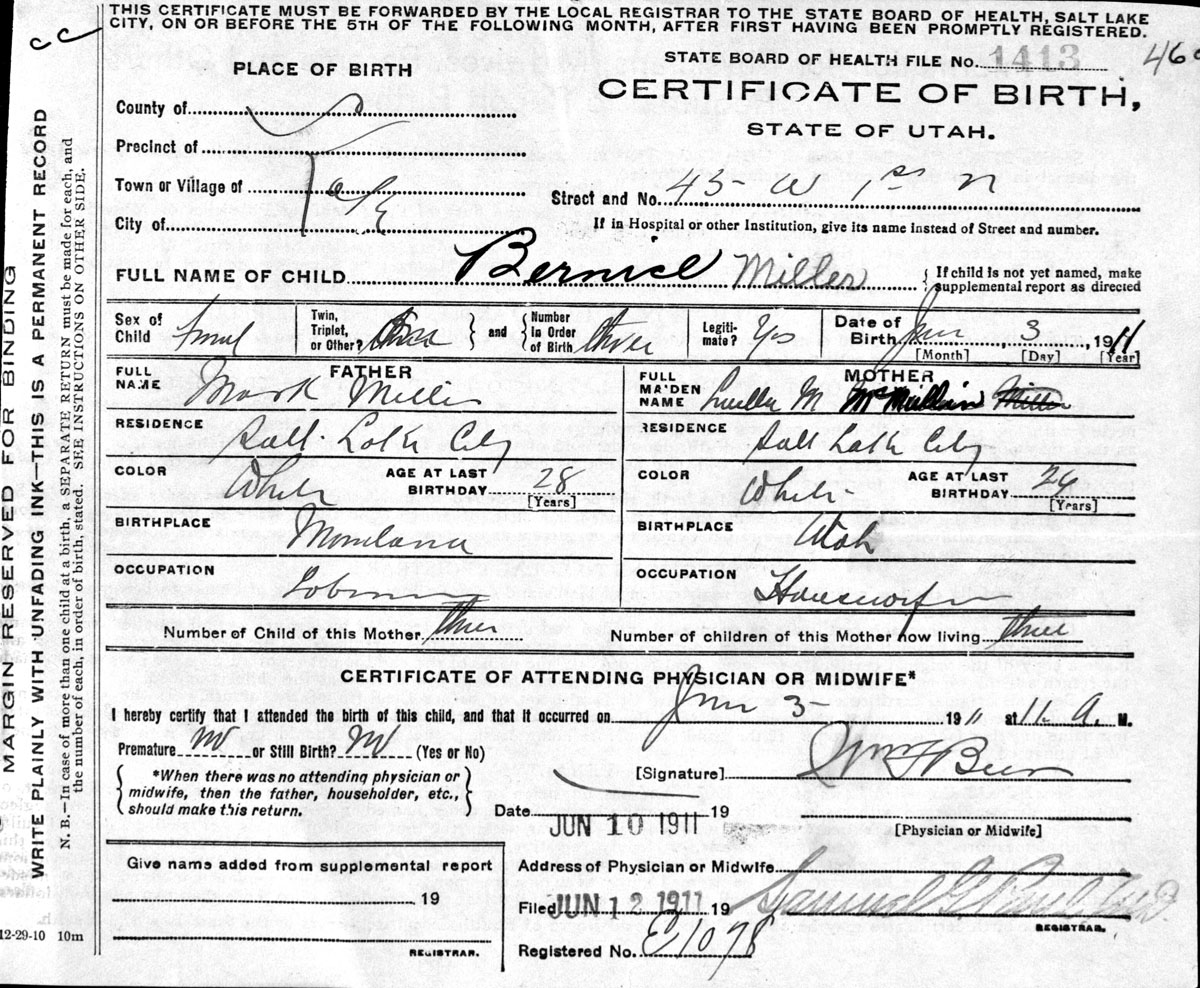 THIS CERTIFICATE MUST BE FORWARDED BY THE LOCAL REGISTRAR TO THE STATE BOARD OF HEALTH, SALT LAKE
CITY, ON OR BEFORE THE 5TH OF THE FOLLOWING MONTH, AFTER FIRST HAVING BEEN PROMPTLY REGISTERED.
cc
MARGIN RESERVED FOR BINDING
WRITE PLAINLY WITH UNFADING INK—THIS IS A PERMANENT RECORD
N. B.—In case of more than one child at a birth, a SEPARATE RETURN must be made for each, and
the number of each, in order of birth, stated. SEE INSTRUCTIONS ON OTHER SIDE.
STATE BOARD OF HEALTH FILE No. 1413
PLACE OF BIRTH
CERTIFICATE OF BIRTH,
STATE OF UTAH.
County of
Precinct of
Town or Village of
City of
Street and No. 43- W 1st N
If in Hospital or other Institution, give its name instead of Street and number.
FULL NAME OF CHILD Bernice Miller
{ If child is not yet named, make
supplemental report as directed
Sex of Child
Twin, Triplet, or Other? } and { Number In Order of Birth three
Legitimate? Yes
Date of Birth June 3, 1911
[Month] [Day] [Year]
FATHER
FULL NAME Mark Miller
RESIDENCE Salt Lake City
COLOR White
AGE AT LAST BIRTHDAY 28
[Years]
BIRTHPLACE Montana
OCCUPATION
MOTHER
FULL MAIDEN NAME Luella M McMullin Miller
RESIDENCE Salt Lake City
COLOR White
AGE AT LAST BIRTHDAY
[Years]
BIRTHPLACE Utah
OCCUPATION Housewife
Number of Child of this Mother three
Number of children of this Mother now living three
CERTIFICATE OF ATTENDING PHYSICIAN OR MIDWIFE*
I hereby certify that I attended the birth of this child, and that it occurred on June 3- 1911 at 11. A. M.
Premature no or Still Birth? no (Yes or No)
{ *When there was no attending physician or
midwife, then the father, householder, etc.,
should make this return. }
[Signature] Wm F Beer
Date JUN 10 1911 19
[Physician or Midwife]
Give name added from supplemental report
19
REGISTRAR.
Address of Physician or Midwife
Filed JUN 12 1911 19 Samuel G. Paul
REGISTRAR.
Registered No. E1078
12-29-10 10m